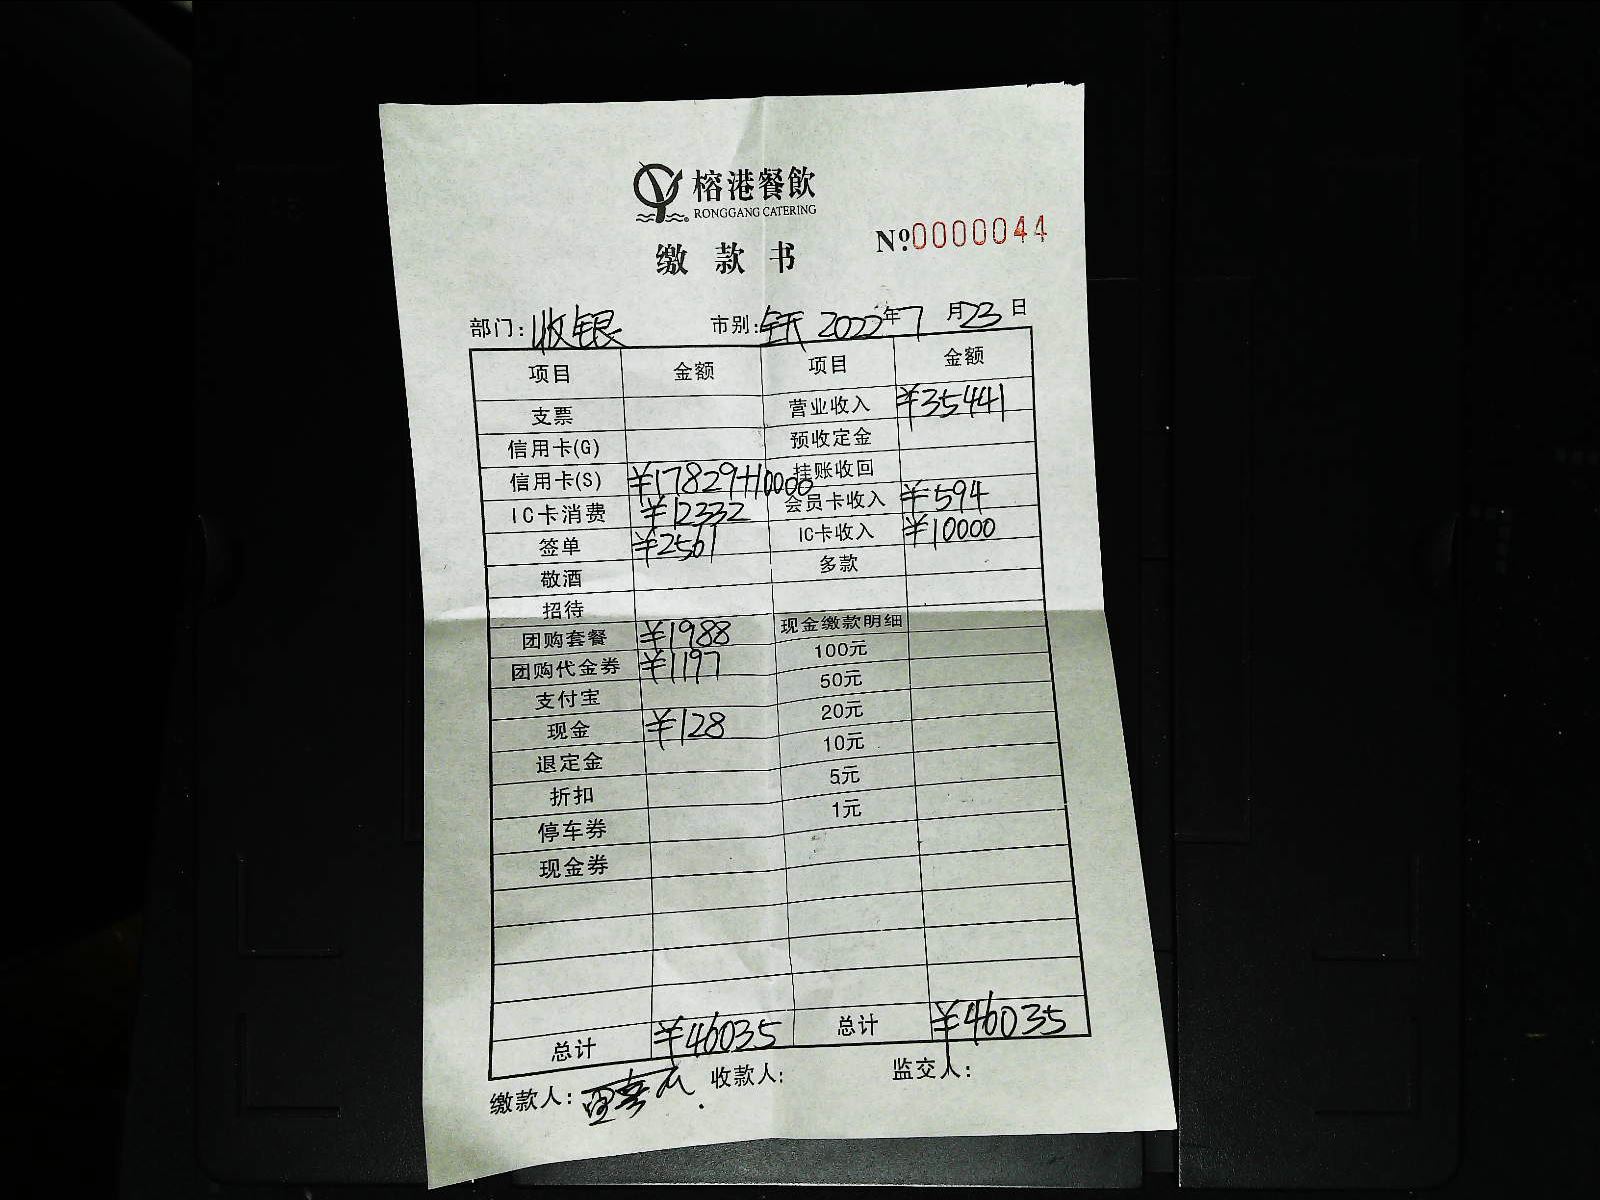 榕港餐飲
RONGGANG CATERING
缴款书
№0000044
部门:收银 市别:全天 2022年7月23日
项目 金额 项目 金额
支票 营业收入 ¥35441
信用卡(G) 预收定金
信用卡(S) ¥17829+10000 挂账收回
IC卡消费 ¥12332 会员卡收入 ¥594
签单 ¥2561 IC卡收入 ¥10000
敬酒 多款
招待
团购套餐 ¥1988 现金缴款明细
团购代金券 ¥1197 100元
支付宝 50元
现金 ¥128 20元
退定金 10元
折扣 5元
停车券 1元
现金券
总计 ¥46035 总计 ¥46035
缴款人: 收款人: 监交人: